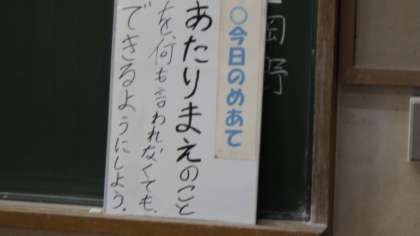 岡野
○今日のめあて
あたりまえのこと
を、何も言われなくても、
できるようにしよう。